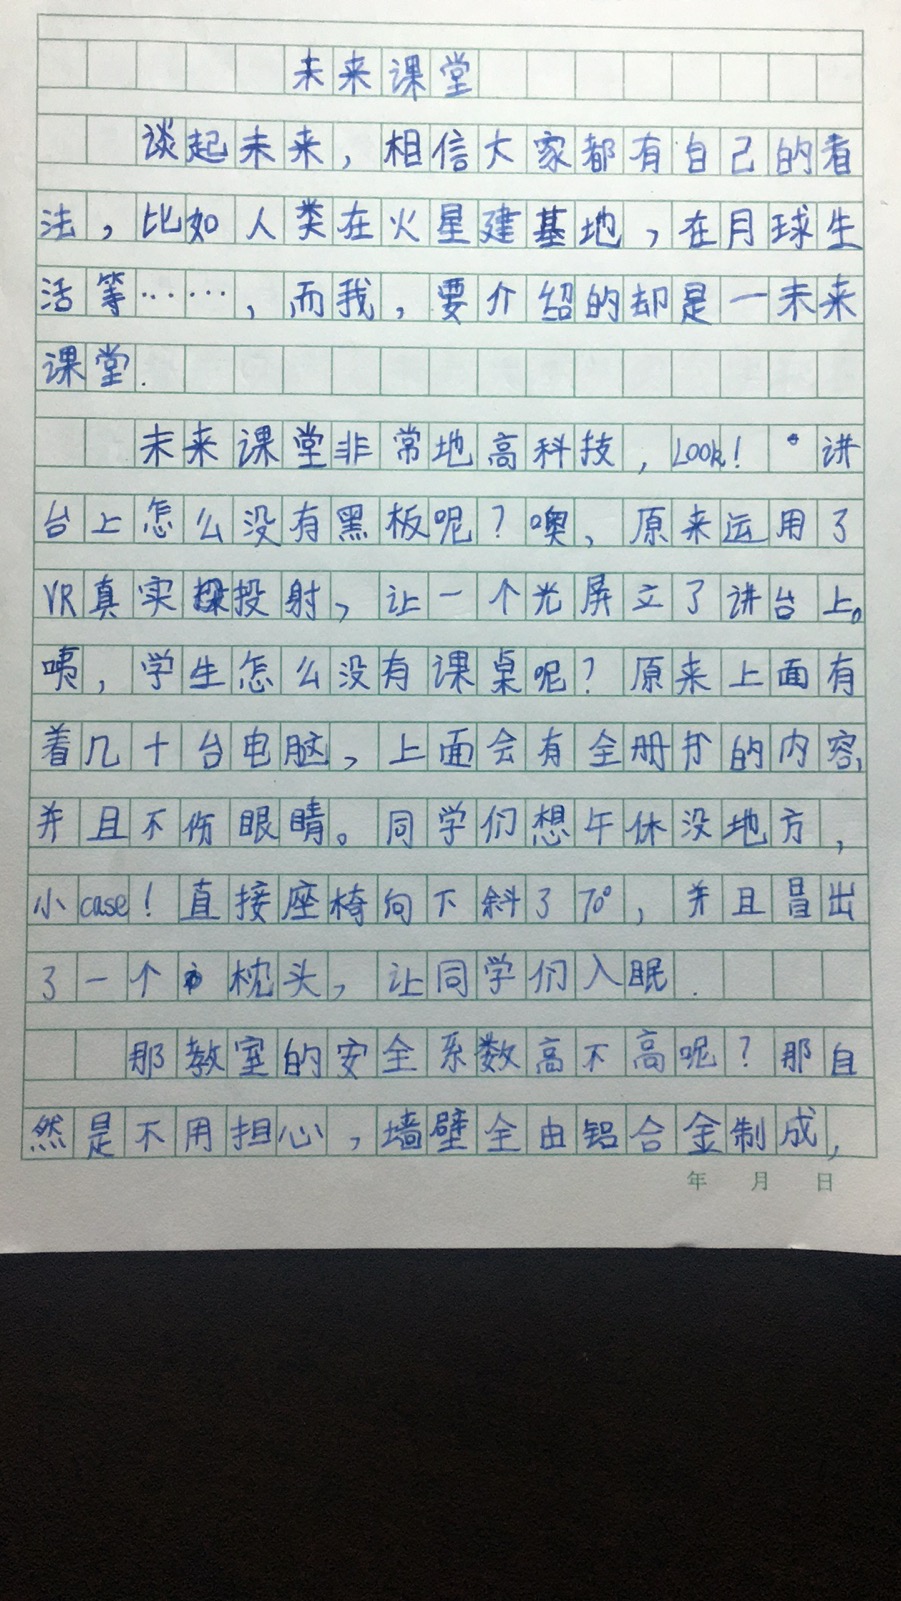 未来课堂
谈起未来，相信大家都有自己的看
法，比如人类在火星建基地，在月球生
活等……，而我，要介绍的却是一未来
课堂.
未来课堂非常地高科技，Look！讲
台上怎么没有黑板呢？噢，原来运用了
VR真实投射，让一个光屏立了讲台上。
咦，学生怎么没有课桌呢？原来上面有
着几十台电脑，上面会有全册书的内容，
并且不伤眼睛。同学们想午休没地方，
小case！直接座椅向下斜了70°，并且冒出
了一个枕头，让同学们入眠.
那教室的安全系数高不高呢？那自
然是不用担心，墙壁全由铝合金制成，
年 月 日